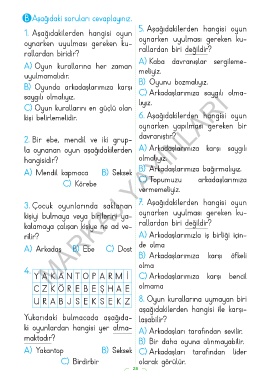 B Aşağıdaki soruları cevaplayınız.
1. Aşağıdakilerden hangisi oyun
oynarken uyulması gereken ku-
rallardan biridir?
A) Oyun kurallarına her zaman
uyulmamalıdır.
B) Oyunda arkadaşlarımıza karşı
saygılı olmalıyız.
C) Oyun kurallarını en güçlü olan
kişi belirlemelidir.
2. Bir ebe, mendil ve iki grup-
la oynanan oyun aşağıdakilerden
hangisidir?
A) Mendil kapmaca B) Seksek
C) Körebe
3. Çocuk oyunlarında saklanan
kişiyi bulmaya veya birilerini ya-
kalamaya çalışan kişiye ne ad ve-
rilir?
A) Arkadaş B) Ebe C) Dost
4.
Y A K A N T O P A R M İ
C Z K Ö R E B E Ş H A E
U R A B U S E K S E K Z
Yukarıdaki bulmacada aşağıda-
ki oyunlardan hangisi yer alma-
maktadır?
A) Yakantop B) Seksek
C) Birdirbir
5. Aşağıdakilerden hangisi oyun
oynarken uyulması gereken ku-
rallardan biri değildir?
A) Kaba davranışlar sergileme-
meliyiz.
B) Oyunu bozmalıyız.
C) Arkadaşlarımıza saygılı olma-
lıyız.
6. Aşağıdakilerden hangisi oyun
oynarken yapılması gereken bir
davranıştır?
A) Arkadaşlarımıza karşı saygılı
olmalıyız.
B) Arkadaşlarımıza bağırmalıyız.
C) Topumuzu arkadaşlarımıza
vermemeliyiz.
7. Aşağıdakilerden hangisi oyun
oynarken uyulması gereken ku-
rallardan biri değildir?
A) Arkadaşlarımızla iş birliği için-
de olma
B) Arkadaşlarımıza karşı öfkeli
olma
C) Arkadaşlarımıza karşı bencil
olmama
8. Oyun kurallarına uymayan biri
aşağıdakilerden hangisi ile karşı-
laşabilir?
A) Arkadaşları tarafından sevilir.
B) Bir daha oyuna alınmayabilir.
C) Arkadaşları tarafından lider
olarak görülür.